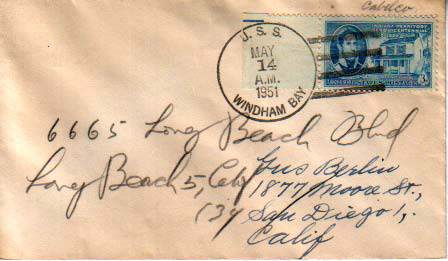 Cabilco
U.S.S.
MAY
14
A.M.
1951
WINDHAM BAY
INDIANA TERRITORY
SESQUICENTENNIAL
3¢
6665 Long Beach Blvd
Long Beach 5, Calif
Gus Berlin
1877 Moore St.,
San Diego 1,
Calif